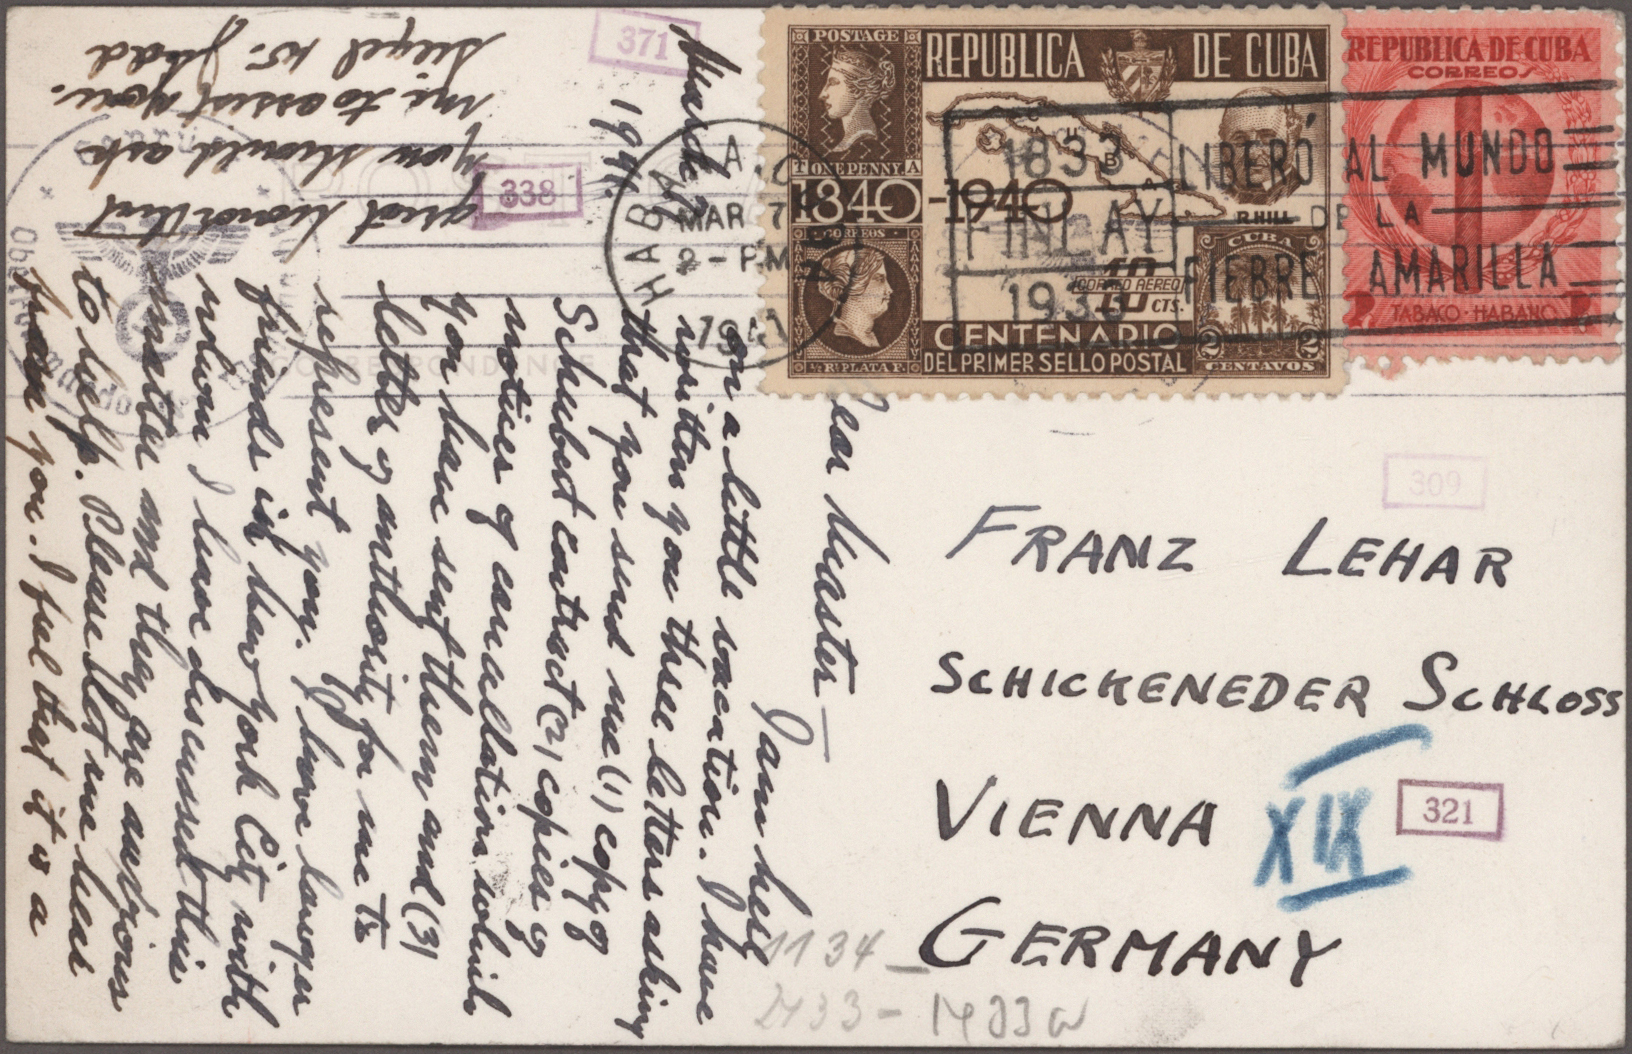 March 7
1941.
Dear Master —
I am here
on a little vacation. I have
written you three letters asking
that you send me (1) copy of
Schubert contract (2) copies of
notice of cancellation which
you have sent them and (3)
letter of authority for me to
represent you. I have lawyer
friends in New York City with
whom I have discussed this
matter and they are anxious
to help. Please let me hear
from you. I feel that it is a
great honor that
you should ask
me to assist you.
371
338
POSTAGE
ONE PENNY.
REPUBLICA DE CUBA
CUBA
1840-1940
R.HILL
CORREOS
½ R. PLATA F.
CORREO AEREO
10 CTS.
CENTENARIO
DEL PRIMER SELLO POSTAL
CUBA
2 2
CENTAVOS
REPUBLICA DE CUBA
CORREOS
TABACO·HABANO
HABANA
MAR 7
2 - P.M
1941
1833
FINLAY
1933
LIBERÓ AL MUNDO
DE LA
FIEBRE AMARILLA
CORRESPONDENCE
309
FRANZ LEHAR
SCHICKENEDER SCHLOSS
VIENNA XIX
321
GERMANY
1134 —